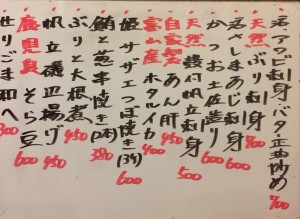 活アワビ刺身バター正油炒め 900
天然ぶり刺身 700
活きしまあじ刺身 600
かつお土佐造り 600
自家製 殻付帆立刺身 500
富山産 あん肝 450
ホタルイカ 400
姫サザエつぼ焼き(3ケ) 600
鮪と葱串焼き(2本) 380
ぶりと大根煮 450
帆立磯辺揚げ 450
鹿児島 そら豆 600
せりごま和へ 300